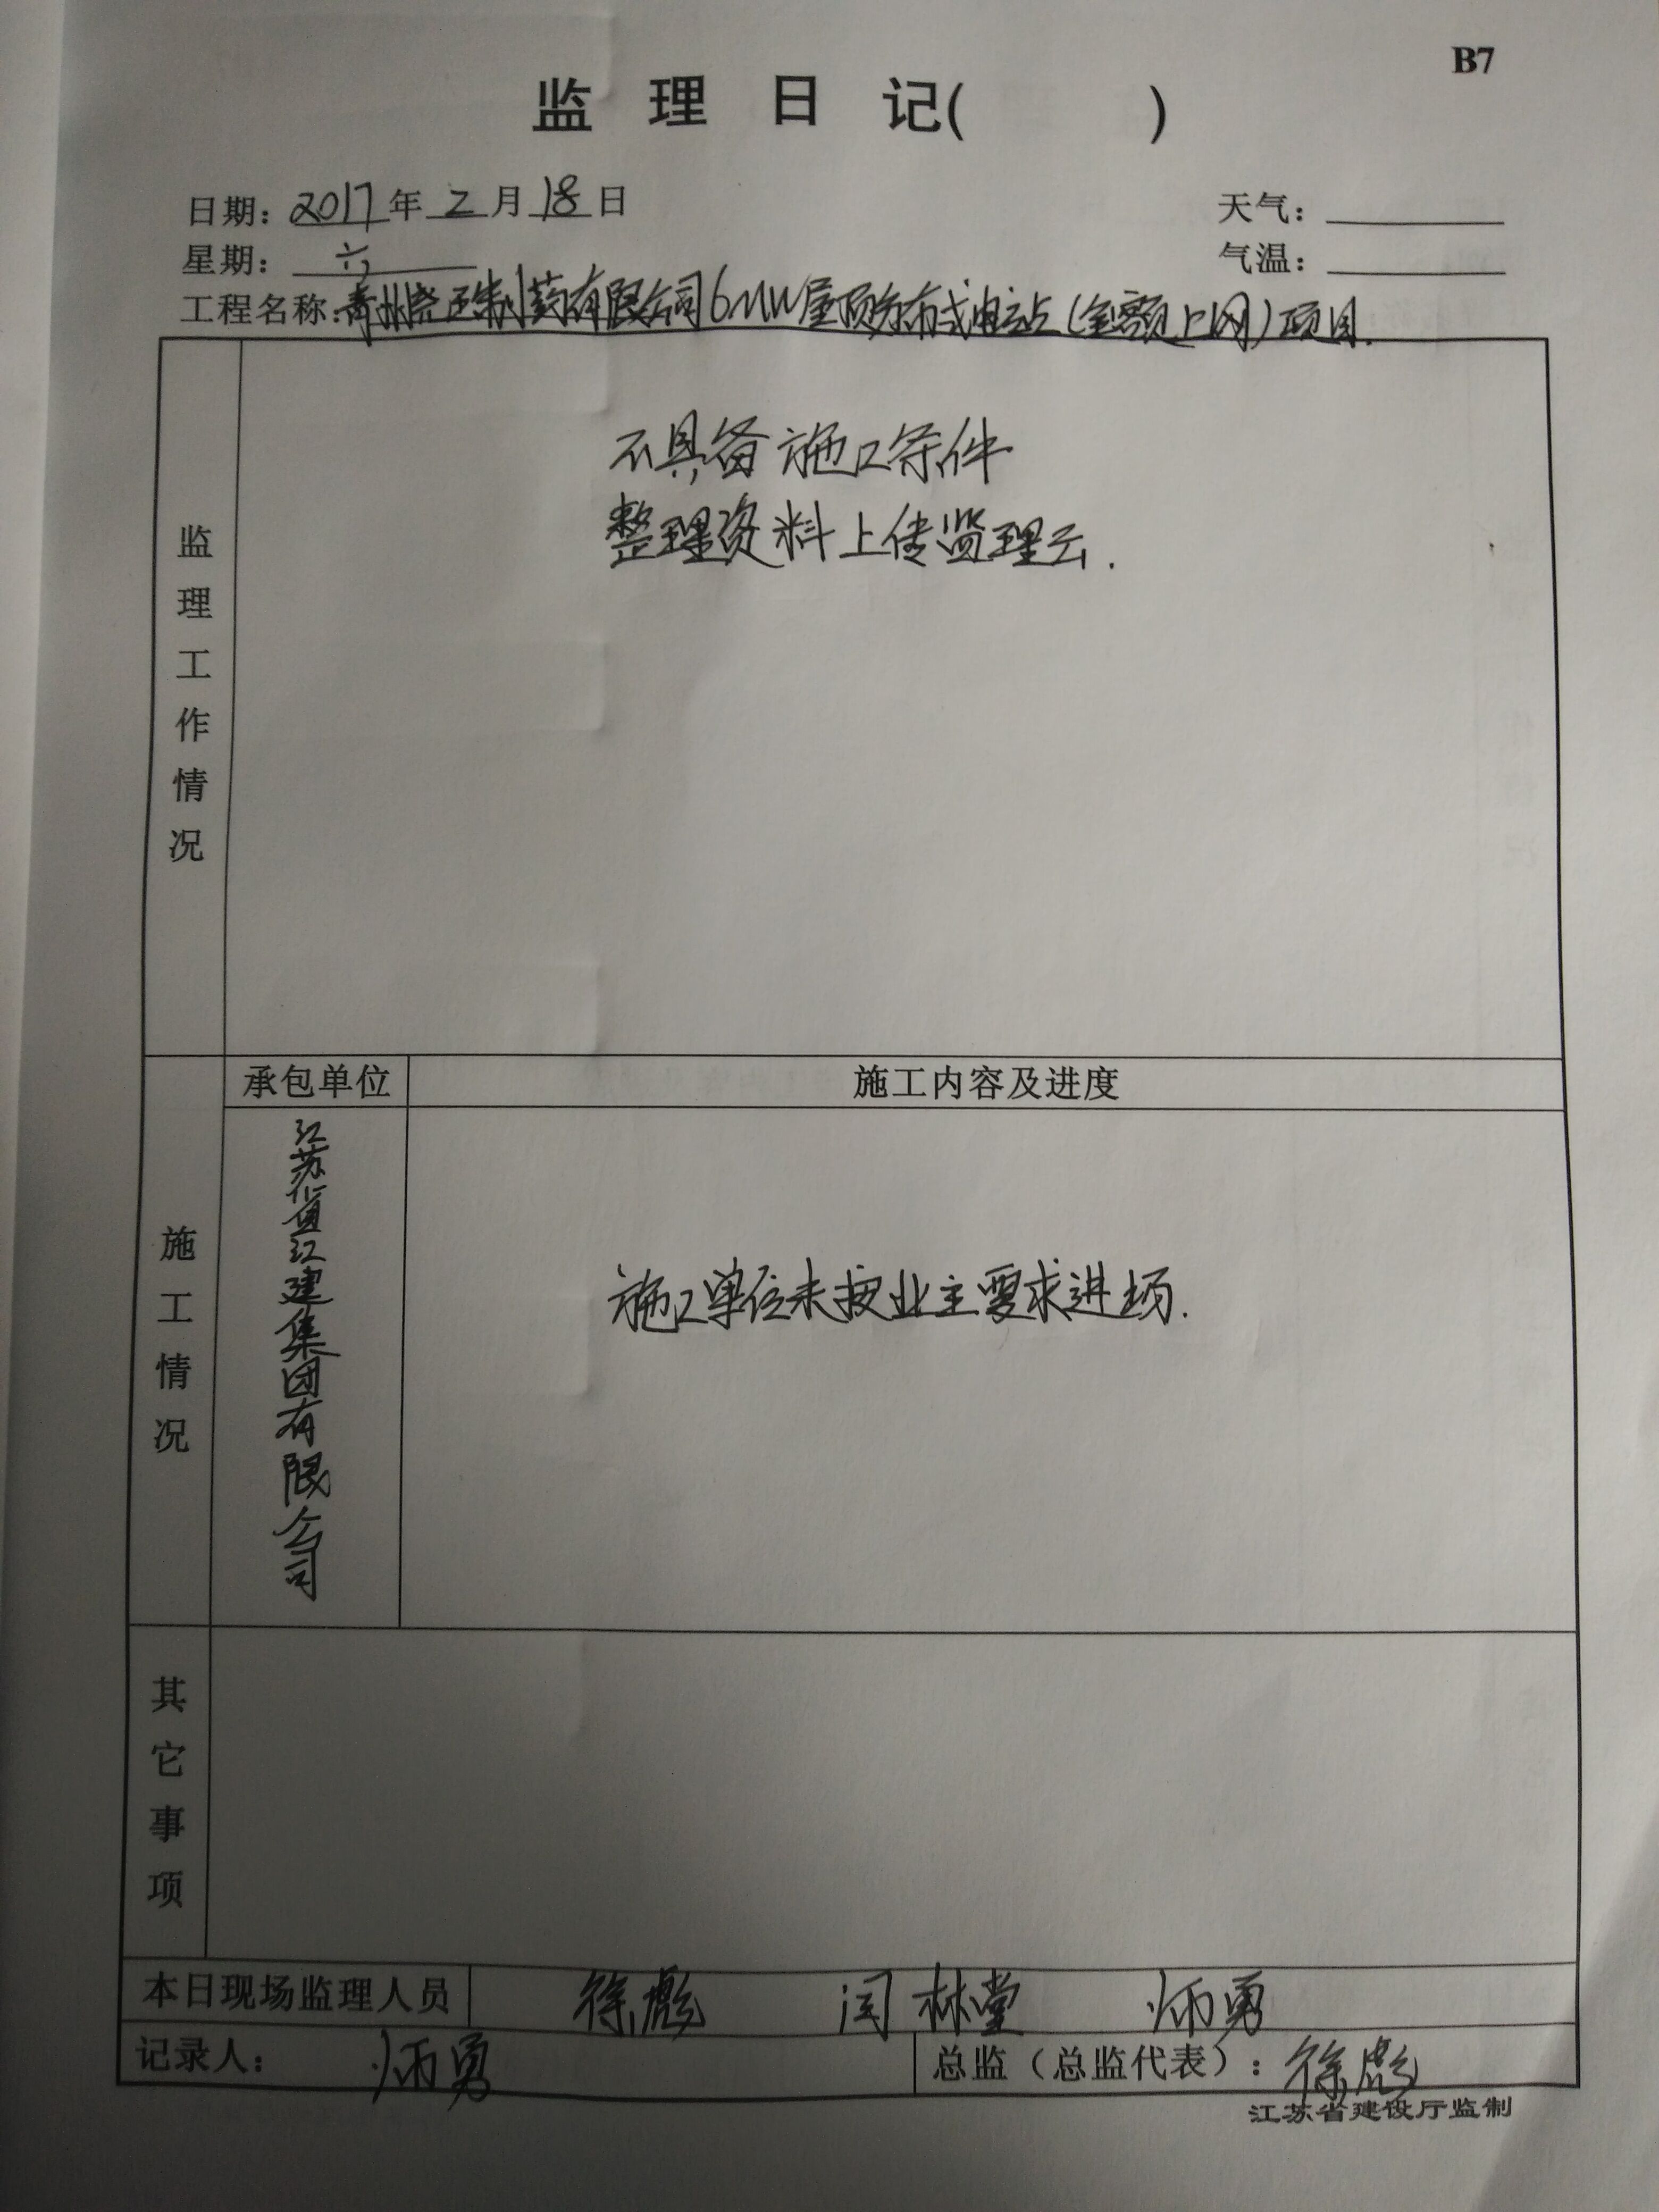 B7
监理日记( )
日期: 2017年2月18日
天气:
星期: 六
气温:
工程名称: 青州尧王制药有限公司6MW屋顶分布式电站(全额上网)项目.
监理工作情况
不具备施工条件
整理资料上传监理云.
承包单位
施工内容及进度
施工情况
江苏省江建集团有限公司
施工单位未按业主要求进场.
其它事项
本日现场监理人员 徐彪 闫林堂 炳勇
记录人: 炳勇
总监(总监代表): 徐彪
江苏省建设厅监制